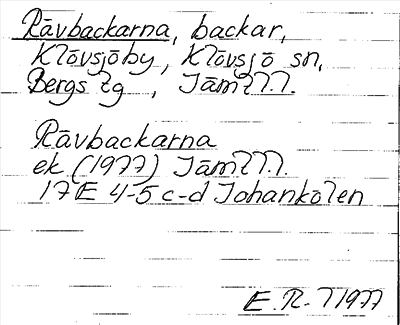 Rävbackarna, backar,
Klövsjöby, Klövsjö sn,
Bergs tg, Jämtl.
Rävbackarna
ek (1977) Jämtl.
17E 4-5 c-d Johankölen
E. R. 1977